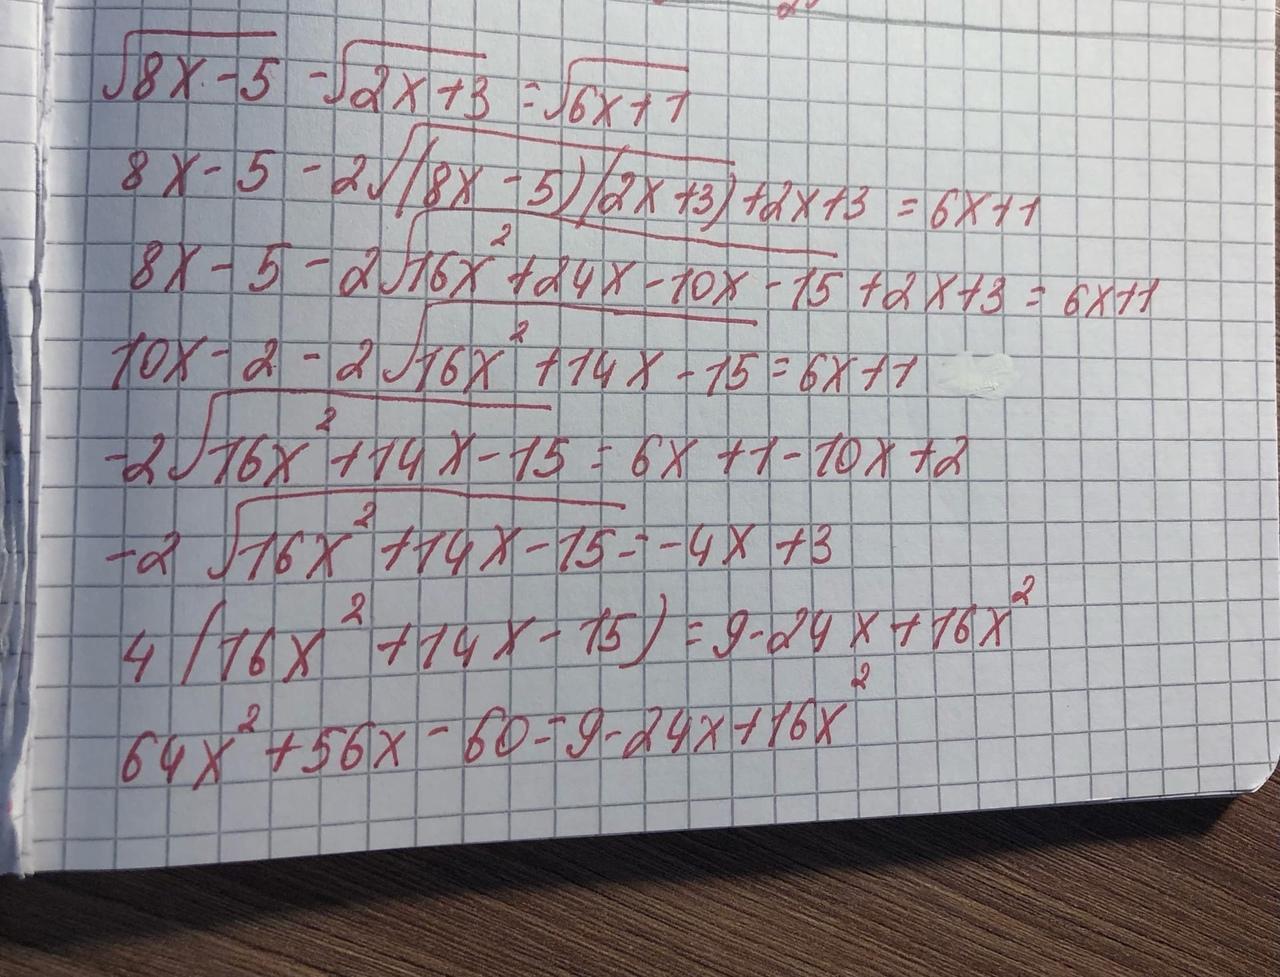 √(8x-5) - √(2x+3) = √(6x+1)
8x-5 - 2√((8x-5)(2x+3)) + 2x+3 = 6x+1
8x-5 - 2√(16x² + 24x - 10x - 15) + 2x+3 = 6x+1
10x-2 - 2√(16x² + 14x - 15) = 6x+1
-2√(16x² + 14x - 15) = 6x + 1 - 10x + 2
-2√(16x² + 14x - 15) = -4x + 3
4(16x² + 14x - 15) = 9 - 24x + 16x²
64x² + 56x - 60 = 9 - 24x + 16x²